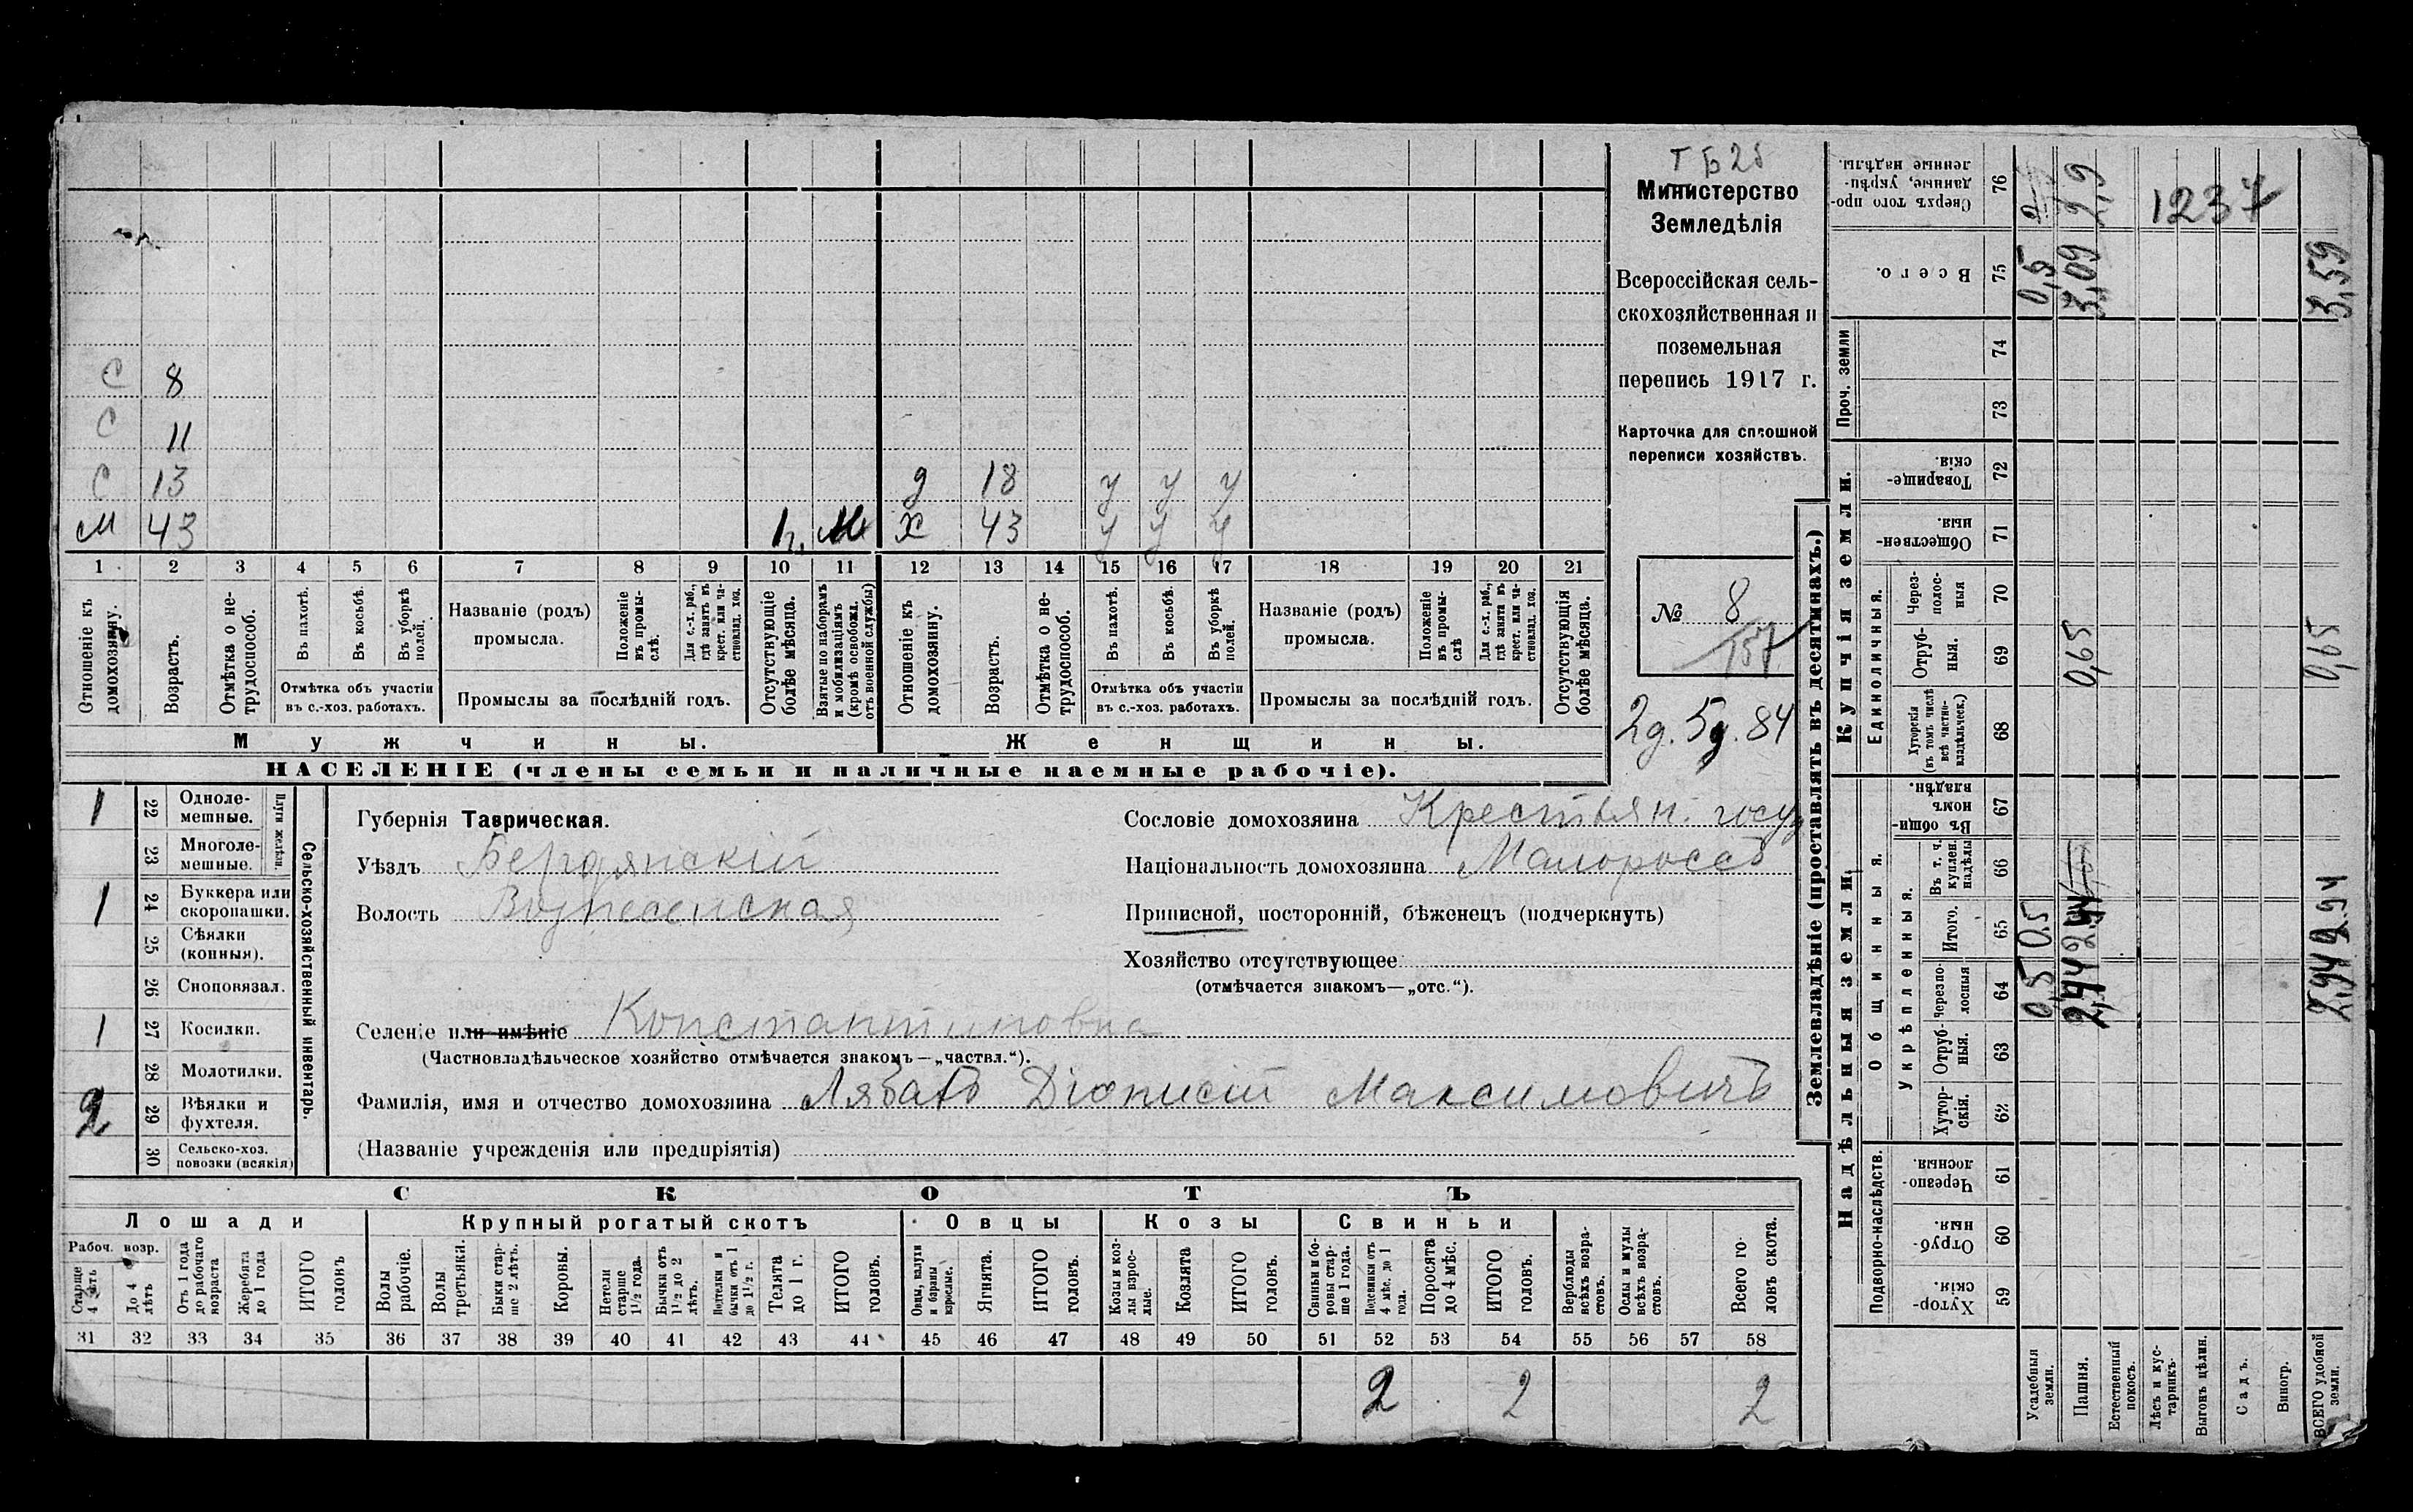 Т Б 25
Министерство
Земледѣлія
Всероссійская сель-
скохозяйственная и
поземельная
перепись 1917 г.
Карточка для сплошной
переписи хозяйствъ.
№ 8
157
2д. 5д. 84
С 8
С 11
С 13 д 18 у у у
М 43 х 43 у у у
1 2 3 4 5 6 7 8 9 10 11 12 13 14 15 16 17 18 19 20 21
Отношеніе къ домохозяину.
Возрастъ.
Отмѣтка о не-трудоспособ.
Въ пахотѣ.
Въ косьбѣ.
Въ уборкѣ полей.
Отмѣтка объ участіи
въ с.-хоз. работахъ.
Названіе (родъ)
промысла.
Положеніе въ промы-слѣ.
Для с.-х. раб., гдѣ занятъ въ крест. или ча-стновлад. хоз.
Промыслы за послѣдній годъ.
Отсутствующіе болѣе мѣсяца.
Взятые по наборамъ и мобилизаціямъ (кромѣ освобожд. отъ военной службы)
Отношеніе къ домохозяину.
Возрастъ.
Отмѣтка о не-трудоспособ.
Въ пахотѣ.
Въ косьбѣ.
Въ уборкѣ полей.
Отмѣтка объ участіи
въ с.-хоз. работахъ.
Названіе (родъ)
промысла.
Положеніе въ промы-слѣ
Для с.-х. раб., гдѣ занята въ крест. или ча-стновлад. хоз.
Промыслы за послѣдній годъ.
Отсутствующія болѣе мѣсяца.
Мужчины. Женщины.
НАСЕЛЕНІЕ (члены семьи и наличные наемные рабочіе).
1 22 Одноле-мешные.
23 Многоле-мешные.
Плуги желѣзн.
1 24 Буккера или скоропашки.
25 Сѣялки (конныя).
26 Сноповязал.
1 27 Косилки.
28 Молотилки.
2 29 Вѣялки и фухтеля.
30 Сельско-хоз. повозки (всякія)
Сельско-хозяйственный инвентарь.
Губернія Таврическая.
Уѣздъ Бердянскій
Волость Вознесенская
Селеніе или имѣніе Константиновка
(Частновладѣльческое хозяйство отмѣчается знакомъ—„частвл.“).
Фамилія, имя и отчество домохозяина Лябахъ Діонисій Максимовичъ
(Названіе учрежденія или предпріятія)
Сословіе домохозяина Крестьян. госуд
Національность домохозяина Малороссъ
Приписной, посторонній, бѣженецъ (подчеркнуть)
Хозяйство отсутствующее
(отмѣчается знакомъ—„отс.“).
СКОТЪ
Лошади Крупный рогатый скотъ Овцы Козы Свиньи
Рабоч. возр.
Старше 4 лѣтъ
До 4 лѣтъ
Отъ 1 года до рабочаго возраста
Жеребята до 1 года
ИТОГО головъ
Волы рабочіе.
Волы третьяки.
Быки стар-ше 2 лѣтъ.
Коровы.
Нетели старше 1½ года.
Бычки отъ 1½ до 2 лѣтъ.
Подтелки и бычки отъ 1 до 1½ г.
Телята до 1 г.
ИТОГО головъ.
Овцы, валухи и бараны взрослые.
Ягнята.
ИТОГО головъ.
Козы и коз-лы взрос-лые.
Козлята
ИТОГО головъ.
Свиньи и бо-ровы стар-ше 1 года.
Подсвинки отъ 4 мѣс. до 1 года.
Поросята до 4 мѣс.
ИТОГО головъ.
Верблюды всѣхъ возра-стовъ.
Ослы и мулы всѣхъ возра-стовъ.
Всего го-ловъ скота.
31 32 33 34 35 36 37 38 39 40 41 42 43 44 45 46 47 48 49 50 51 52 53 54 55 56 57 58
2 2 2
Землевладѣніе (проставлять въ десятинахъ.)
Надѣльныя земли.
Купчія земли.
Проч. земли
Подворно-наслѣдств.
Общинныя.
Укрѣпленныя.
Единоличныя.
59 Хутор-скія.
60 Отруб-ныя.
61 Черезпо-лосныя.
62 Хутор-скія.
63 Отруб-ныя.
64 Черезпо-лосныя 0,5 2,94 2,94
65 Итого. 0.5 2.94 2.94
66 Въ т. ч. куплен. надѣлы
67 Въ общи-номъ владѣн.
68 Хуторскія (въ томъ числѣ всѣ частно-владѣльческ.)
69 Отруб-ныя. 0,65 0,65
70 Через-полос-ныя
71 Обществен-ныя.
72 Товарище-скія.
73
74
75 Всего. 0,5 3,09 3,59
76 Сверхъ того про-данные, укрѣп-ленные надѣлы. 2,9
1237
Усадебныя земли.
Пашня.
Естественный покосъ.
Лѣсъ и кус-тарникъ.
Выгонъ цѣлин.
Садъ.
Виногр.
ВСЕГО удобной земли.